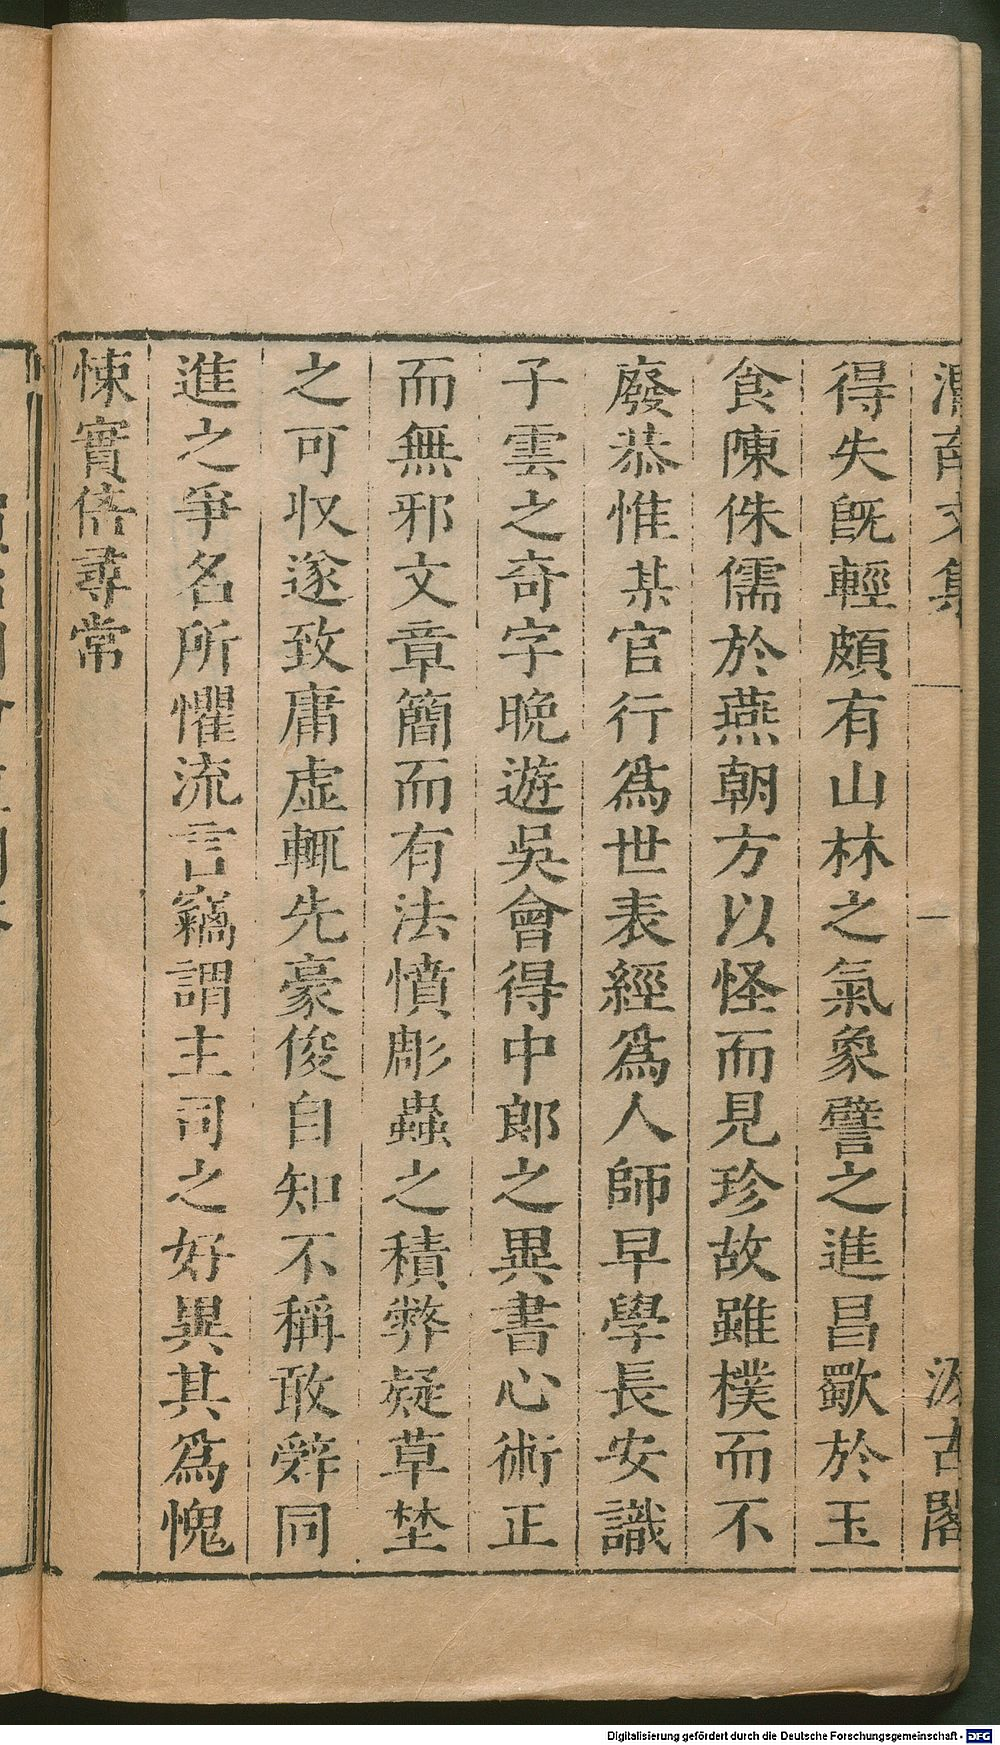 渭南文集 汲古閣
得失旣輕頗有山林之氣象譬之進昌歜於玉
食陳侏儒於燕朝方以怪而見珍故雖樸而不
廢恭惟某官行爲世表經爲人師早學長安識
子雲之奇字晚遊吳會得中郎之異書心術正
而無邪文章簡而有法憤彫蟲之積弊疑草埜
之可収遂致庸虛輒先豪俊自知不稱敢辤同
進之爭名所懼流言竊謂主司之好異其爲愧
悚實倍尋常
Digitalisierung gefördert durch die Deutsche Forschungsgemeinschaft - DFG